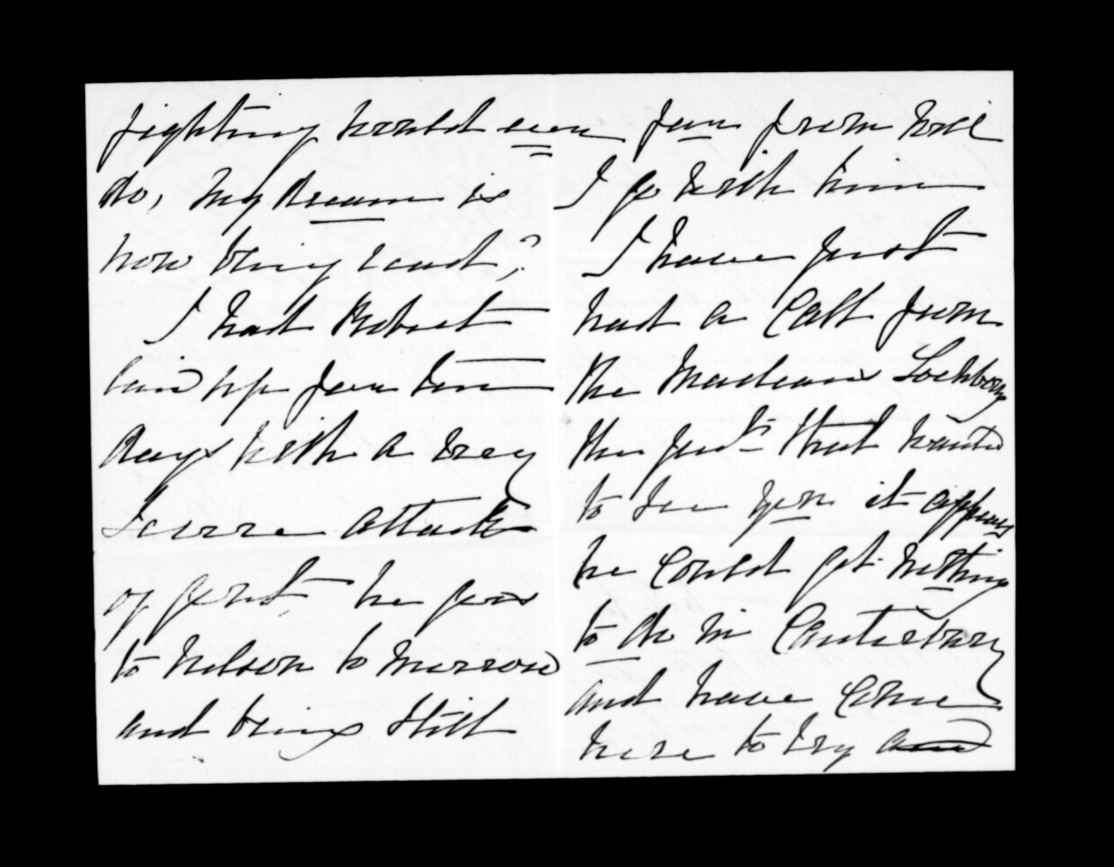 fighting would even
do, My dream is
now being read,?
I had Robert
laid up for ten
days with a very
severe attack
of gout, he goes
to Nelson to morrow
and being still
far from well
I go with him
I have just
had a call from
the Macleans Lochbuy
the that wanted
to see you it appears
he could get nothing
to do in Canterbury
and have come
here to try and